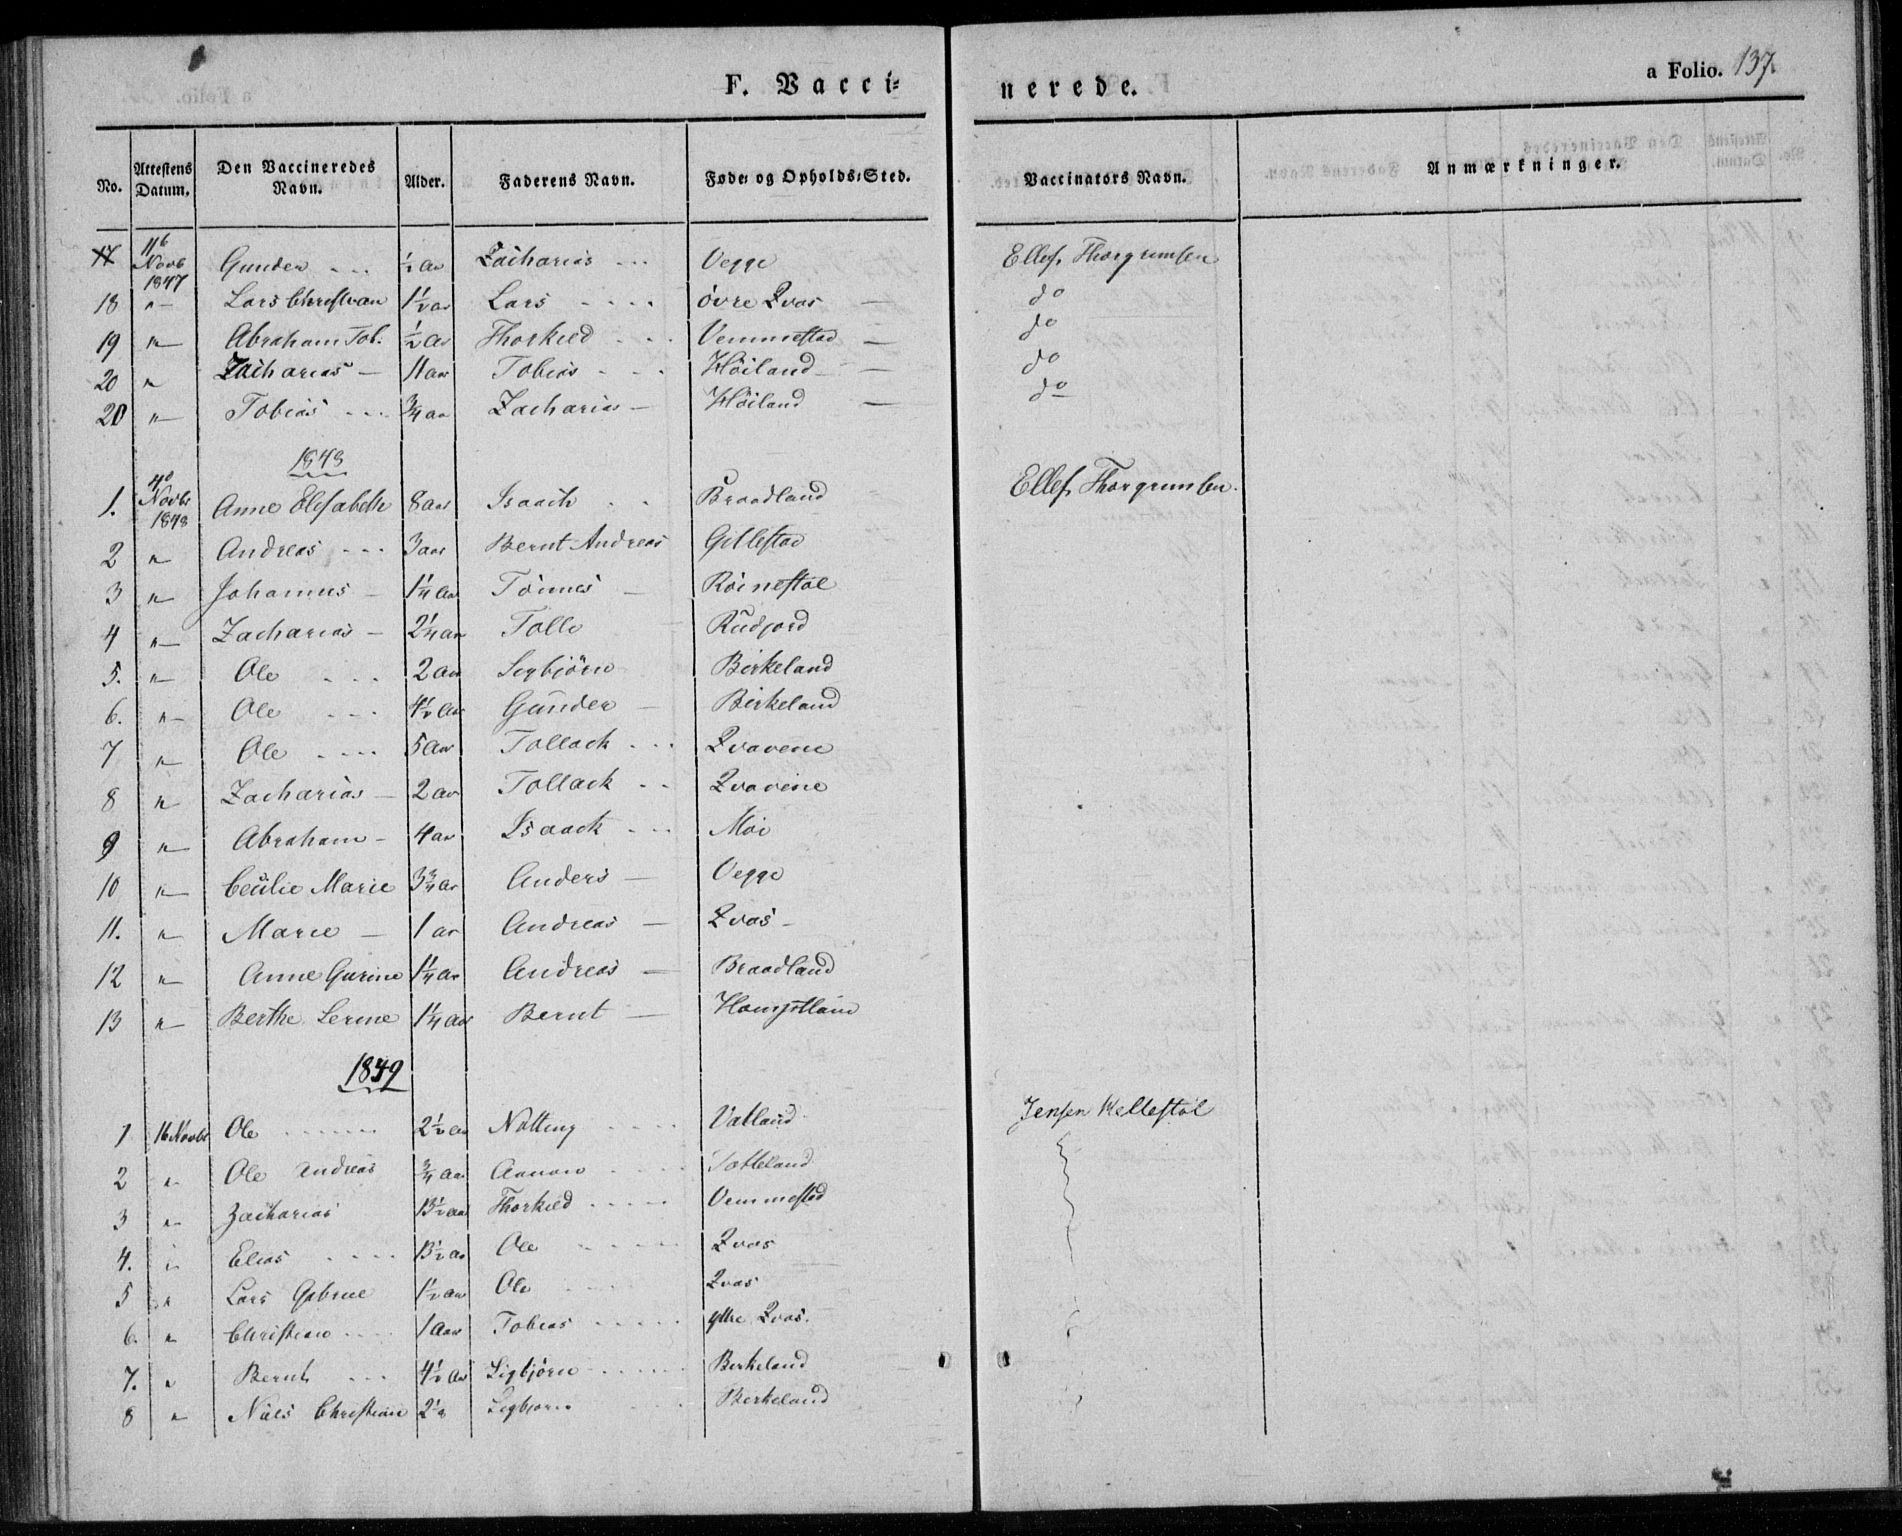 F. Vacci=
nerede.
a Folio. 137.
No. Attestens Datum. Den Vaccineredes Navn. Alder. Faderens Navn. Føde= og Opholds=Sted. Vaccinators Navn. Anmærkninger.
17 11te Novb 1847 Gunder - - - ½ Aar Zacharias - - - Vegge Ellef Thorgrimsen
18 "— Lars Christian 1½ aar Lars - - - - øvre Qvas — do
19 "— Abraham Tob: ½ Aar Thorkild - - - Vemmestad — do
20 "— Zacharias — 11 aar Tobias - - - Höiland — do
20 "— Tobias - - - ¾ aar Zacharias — Höiland — do
1848
1. Novbr 1848 Anne Elisabeth 8 aar Isaach - - Braadland Ellef Thorgrimsen.
2 "— Andreas - - - 3 aar Bernt Andreas Gillestad
3 "— Johannes — 1¼ Aar Tönnes — Röinestöl
4 "— Zacharias — 2¼ aar Tolle Rudjord
5. "— Ole - - - 2 aar Sigbjörn Birkeland
6. "— Ole - - - 4½ Aar Gunder — Birkeland
7 "— Ole - - - - 5 Aar Tollack - - - Qvavene
8 "— Zacharias — 2 aar Tollack - - Qvavene
9 "— Abraham — 4 aar Isaack - - - Moi
10 "— Cecilie Marie 3¾ ar Anders — Vegge
11. "— Marie — 1 ar Andreas — Qvas —
12 "— Anne Gurine 1¼ ar Andreas — Braadland
13 "— Berthe Serine 1¼ Aar Bernt —
1849
1 16 Novbr Ole - - - - 2½ Aar Notting - - - - Vatland Jensen Kellestöl
2 " Ole Andreas ¾ Aar Aanon - - - - Totteland
3 "— Zacharias 13½ aar Thorkild - - - - Vemmestad
4. "— Elias - - - - 13½ ar Ole - - - - Qvas
5 " Lars Gabriel 1½ aar Ole - - - Qvas
6. "— Christian - - - - 1 Aar Tobias - - - - - ytre Qvas.
7. " Bernt - - - 4½ Aar Sigbjörn - - - - - Birkeland
8 "— Niels Christian 2½ Sigbjörn - - - Birkeland